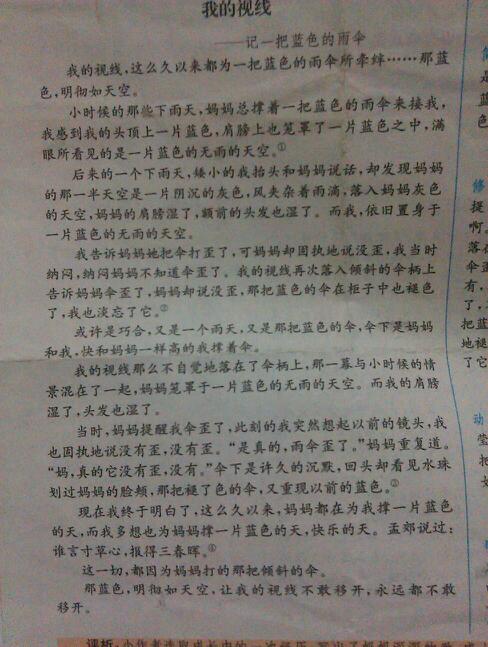 我的视线
——记一把蓝色的雨伞
我的视线，这么久以来都为一把蓝色的雨伞所牵绊……那蓝
色，明彻如天空。
小时候的那些下雨天，妈妈总撑着一把蓝色的雨伞来接我，
我感到我的头顶上一片蓝色，肩膀上也笼罩了一片蓝色之中，满
眼所看见的是一片蓝色的无雨的天空。①
后来的一个下雨天，矮小的我抬头和妈妈说话，却发现妈妈
的那一半天空是一片阴沉的灰色，风夹杂着雨滴，落入妈妈灰色
的天空，妈妈的肩膀湿了，额前的头发也湿了。而我，依旧置身于
一片蓝色的无雨的天空。
我告诉妈妈她把伞打歪了，可妈妈却固执地说没歪，我当时
纳闷，纳闷妈妈不知道伞歪了。我的视线再次落入倾斜的伞柄上
告诉妈妈伞歪了，妈妈却说没歪，那把蓝色的伞在柜子中也褪色
了，我也淡忘了它。②
或许是巧合，又是一个雨天，又是那把蓝色的伞，伞下是妈妈
和我，快和妈妈一样高的我撑着伞。
我的视线那么不自觉地落在了伞柄上，那一幕与小时候的情
景混在了一起，妈妈笼罩于一片蓝色的无雨的天空。而我的肩膀
湿了，头发也湿了。
当时，妈妈提醒我伞歪了，此刻的我突然想起以前的镜头，我
也固执地说没有歪，没有歪。“是真的，雨伞歪了。”妈妈重复道。
“妈，真的它没有歪，没有。”伞下是许久的沉默，回头却看见水珠
划过妈妈的脸颊，那把褪了色的伞，又重现以前的蓝色。③
现在我终于明白了，这么久以来，妈妈都在为我撑一片蓝色
的天，而我多想也为妈妈撑一片蓝色的天，快乐的天。孟郊说过：
谁言寸草心，报得三春晖。④
这一切，都因为妈妈打的那把倾斜的伞。
那蓝色，明彻如天空，让我的视线不敢移开，永远都不敢
移开。